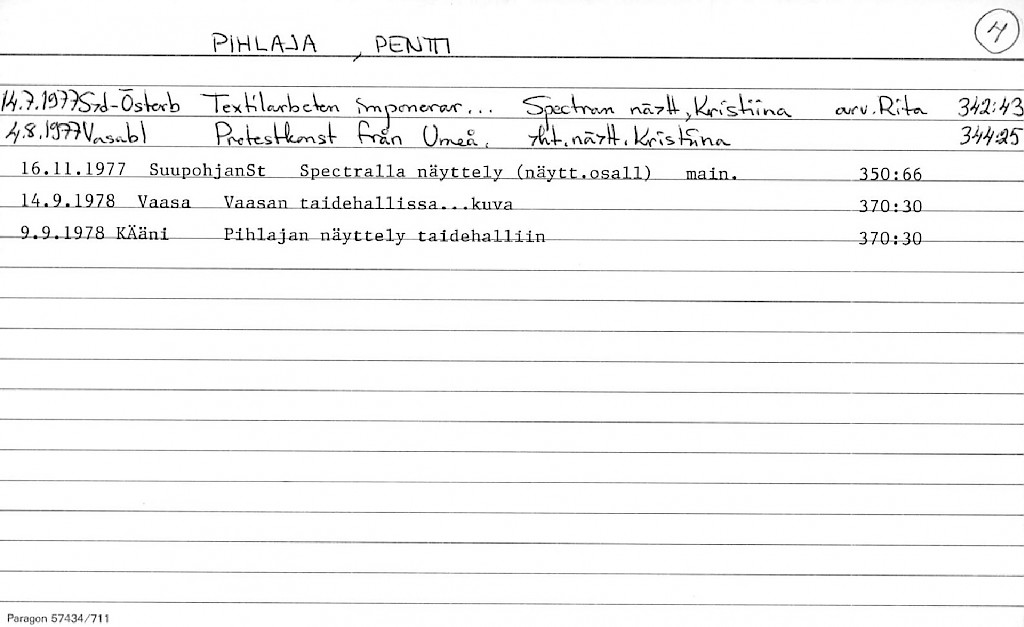 PIHLAJA, PENTTI 4
14.7.1977 Syd-Österb Textilarbeten imponerar... Spectran näytt, Kristiina arv. Rita 342:43
4.8.1977 Vasabl Protestkonst från Umeå. yht.näytt. Kristiina 344:25
16.11.1977 SuupohjanSt Spectralla näyttely (näytt.osall) main. 350:66
14.9.1978 Vaasa Vaasan taidehallissa...kuva 370:30
9.9.1978 KÄäni Pihlajan näyttely taidehalliin 370:30
Paragon 57434/711